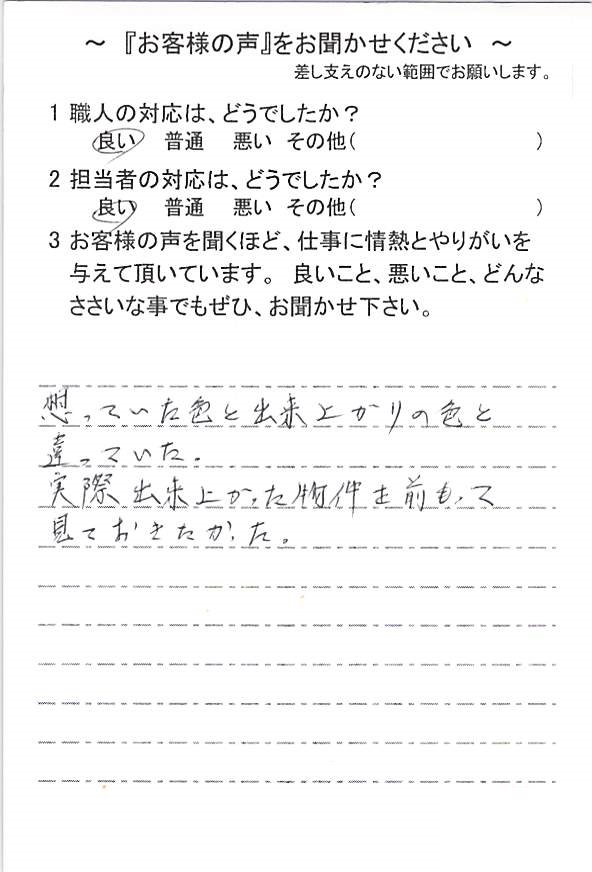 ～ 『お客様の声』をお聞かせください ～
差し支えのない範囲でお願いします。
1 職人の対応は、どうでしたか？
良い 普通 悪い その他( )
2 担当者の対応は、どうでしたか？
良い 普通 悪い その他( )
3 お客様の声を聞くほど、仕事に情熱とやりがいを
与えて頂いています。 良いこと、悪いこと、どんな
ささいな事でもぜひ、お聞かせ下さい。
想っていた色と出来上かりの色と
違っていた。
実際出来上かった物件を前もって
見ておきたかった。